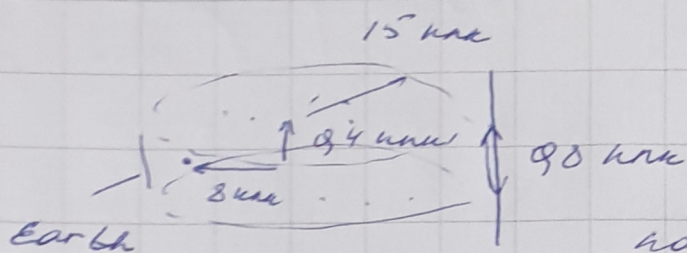 15 кпк
0,4 кпк
0,8 кпк
8 кпк
Earth
по